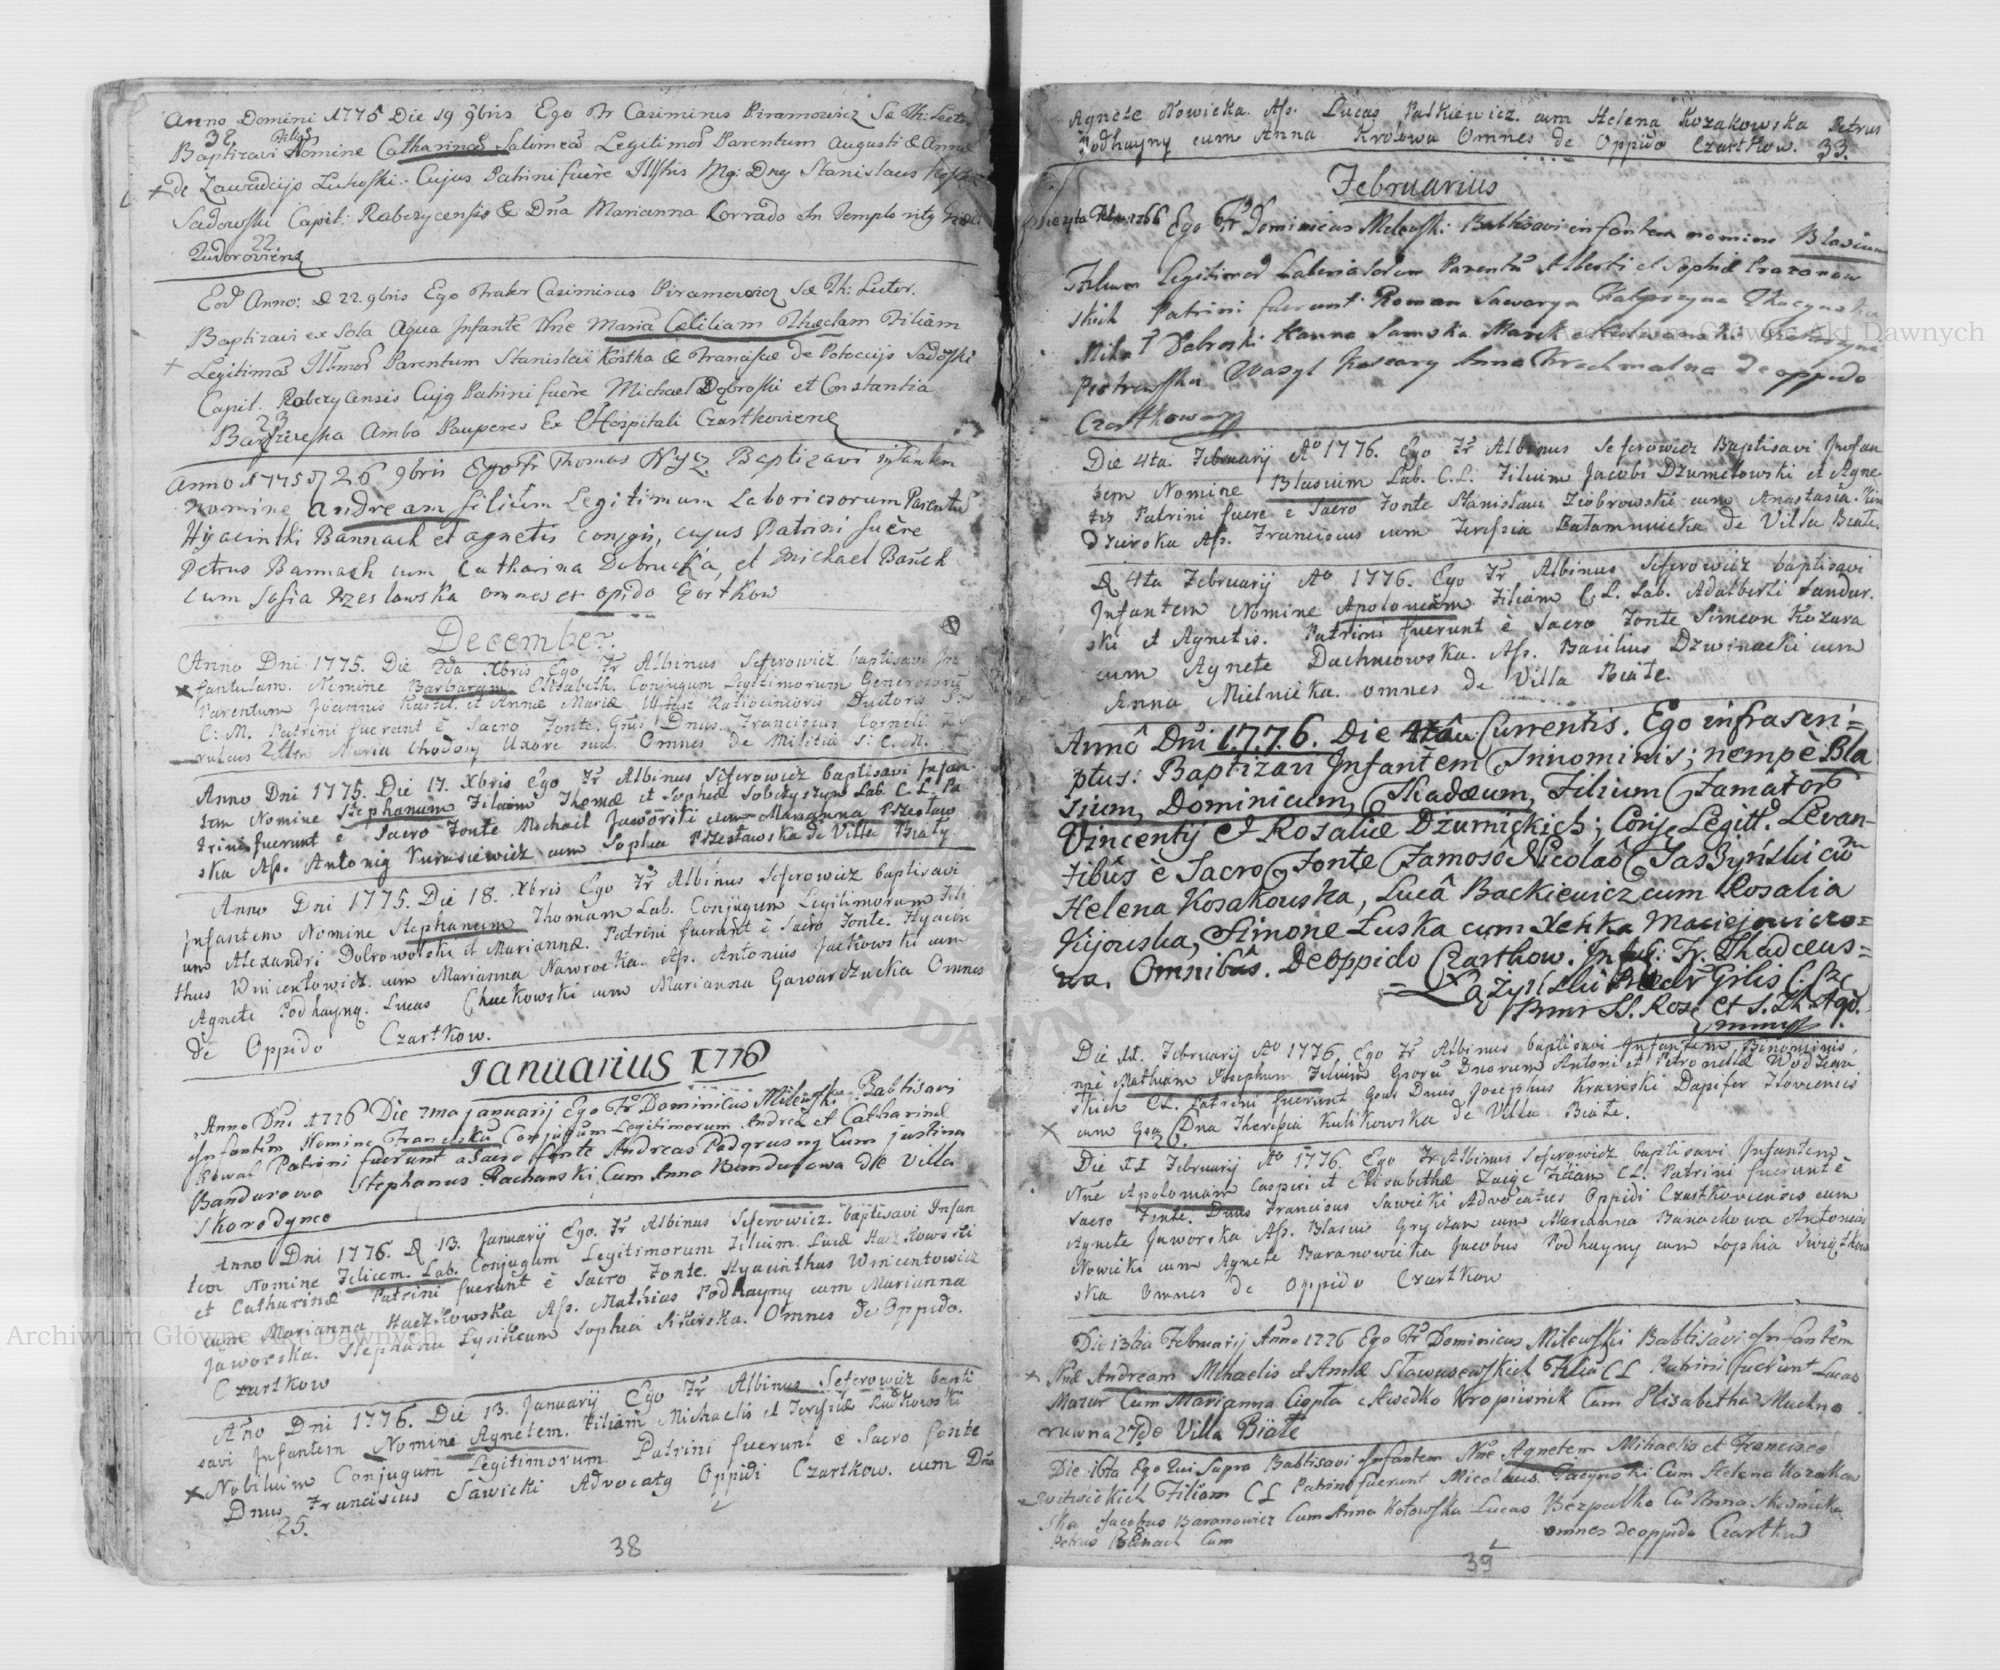 Anno Domini 1775 Die 19 9bris Ego Fr Casimirus Piramowicz Sæ Th: Lector
32 Filias
Baptizavi Nomine Catharinas Salomeas Legitimor Parentum Augusti & Annæ
de Zawadcijs Lukoski: Cujus Patrini fuère Illstris Mg: Dng Stanislaus
Sadowski Capit: Rabczycensis & Dna Marianna Corrado In Templo
22
Eod Anno: & 22. 9bris Ego Frater Casimirus Piramowicz Sæ Th: Lector.
Baptizavi ex Sola Aqua Infantē Nne Maria Cæciliam Theclam Filiam
Legitimas Illmor Parentum Stanislai Kostka & Franciscæ de Potoccijs Sadoski
Capit. Rabczycensis Cujg Patrini fuère Michael Dobroski et Constantia
23
Ambo Pauperes Ex Hospitali Czartkoviene
Anno 1775 26 9bris Ego Fr Thomas Nycz Baptizavi infantem
nomine Andream filium Legitimum Laboriosorum Parentū
Hyacinthi Bannach et agnetis conjgis, cujus Patrini fuère
Petrus Bannach cum Catharina Dobrucka, et Michael Banch
cum Sofia Przeslawska omnes ex opido Czortkow
December.
Anno Dni 1775. Die 2da Xbris Ego Fr Albinus Seferowicz baptisavi In
fantulam. Nomine Barbaram Elisabeth. Conjugum Legitimorum Generosorū
Parentum Joannis Kastel. et Annæ Mariæ Ratiocinioris Ductoris S:
C: M. Patrini fuerunt è Sacro Fonte. Gnsi Dnus. Franciscus Corneli
Maria Uxore sua. Omnes De Militia S: C: M.
Anno Dni 1775. Die 17. Xbris Ego Fr Albinus Seferowicz baptisavi Infan
tem Nomine Stephanum Filium Thomæ et Sophiæ Lab. C. L. Pa
trini fuerunt è Sacro Fonte Michael Jaworski cum Marianna Przeslaw
ska Ass. Antonig Kurasiewicz cum Sophia Przesławska de Villa Biały.
Anno Dni 1775. Die 18. Xbris Ego Fr Albinus Seferowicz baptisavi
Infantem Nomine Stephanum Thomam Lab. Conjugum Legitimorum Fili
um Alexandri Dobrowolski et Mariannæ. Patrini fuerunt è Sacro Fonte. Hyacin
thus Wincentowicz. cum Marianna Nawrocka. Ass. Antonius Jackowski cum
Agnete Podhayng. Lucas Chuckowski cum Marianna Omnes
de Oppido Czartkow.
Ianuarius 1776
Anno Dni 1776 Die 7ma januarij Ego Fr Dominicus Milewski Babtisavi
Infantem Nomine Conjugum Legitimorum Andreæ et Catharinæ
Kowal Patrini fuerunt a Sacro Fonte Andreas Cum justina
Bandurowa Stephanus Cum Anna Bandurowa de Villa
Skorodynce
Anno Dni 1776. & 13. Januarij Ego. Fr Albinus Seferowicz. baptisavi Infan
tem Nomine Felicem. Lab. Conjugum Legitimorum Filium. Lucæ Haczkowski
et Catharinæ Patrini fuerunt è Sacro Fonte. Hyacinthus Wincentowicz
cum Marianna Haczkowska Ass. Mathias Podhayny cum Marianna
Jaworska. Stephanus cum Sophia Sikorska. Omnes de Oppido.
Czartkow
Año Dni 1776. Die 13. Januarij Ego Fr Albinus Seferowicz bapti
savi Infantem Nomine Agnetem. Filiam Michaelis et Teresiæ Rutkowski
Nobilium Conjugum Legitimorum. Patrini fuerunt e Sacro fonte
Dnus Franciscus Sawicki Advocatg Oppidi Czartkow. cum Dña
25.
38
Agnete Nowicka. Ass. Lucas Patkiewicz. cum Helena Kozakowska Petrus
Podhayny cum Anna Krolowa Omnes de Oppido Czartkow. 33.
Februarius
Ego Fr Dominicus Milewski Babtisavi infantem nomine Blasium
Filium Legitimor Parentū Alberti et Sophiæ
skich Patrini fuerunt Roman
Dobroski Hanna Marek
Piotrowska Wasyl Anna de oppido
Czartkow
Die 4ta. Februarij Aº 1776. Ego Fr Albinus Seferowicz Baptisavi Infan
tem Nomine Blasium Lab. C. L. Filium Jacobi Dzumetowski et Agne
tis Patrini fuere è Sacro Fonte Stanislaus Ziobrowski cum Anastasia.
Ass. Franciscus cum Teresia de Villa Biate.
& 4ta Februarij Aº 1776. Ego Fr Albinus Seferowicz baptisavi
Infantem Nomine Apoloniam Filiam C. L. Lab. Adalberti Sandur.
ski et Agnetis. Patrini fuerunt è Sacro Fonte Simeon Kozara
cum Agnete Duchniowska. Ass. Basilius Dzwinacki cum
Anna Mielnicka. omnes de Villa Biate.
Annô Dñi 1.7.7.6. Die 4tâ Currentis. Ego infrascri=
ptus: Baptizavi Infantem Innominis; nempè Bla
sium, Dominicum, Thadæum, Filium Famator
Vincentij et Rosaliæ Dzumickich; Conjg Legitt. Levan-
tibûs è Sacro Fonte Famosô Nicolaô Jaszyński cū
Helena Kosakouska, Lucâ Backiewicz cum Rosalia
Kijouska, Simone Łuska cum Xeńka Maciejowiczo=
wa. Omnibûs. De oppido Czartkow. Infrs: Fr. Thadeus=
SS. Rosæ et S. Th. Aqō.
Die 11. Februarij Aº 1776. Ego Fr Albinus baptisavi Infantem Binominis
npè Mathiam Josephum Filium Gsorū Dnorum Antoni et Petronellæ Wodzean
skich CL. Patrini fuerunt Gsus Dnus Josephus Krainski Dapifer
cum Gsa Dna Theresia Kulikowska de Villa Biate.
Die II Februarij Aº 1776. Ego Fr Albinus Seferowicz baptisavi Infantem
Nñe Apoloniam Casperi et Elisabethæ Zaigc Filiam CL. Patrini fuerunt è
Sacro Fonte. Dnus Franciscus Sawicki Advocatus Oppidi Czartkoviensis cum
Agnete Jaworska Ass. Blasius Gryctar cum Marianna Banachowa Antonius
Nowicki cum Agnete Baranowicka Jacobus Podhayny cum Sophia
ska Omnes de Oppido Czartkow
Die 13tia Februarij Anno 1776 Ego Fr Dominicus Milewski Babtisavi Infantem
Nnē Andream Mihaelis et Annæ Filiū CL Patrini fuerunt Lucas
Mazur Cum Marianna Ciepła Kropiwnik Cum Elisabetha Muchno
ruwna de Villa Biate
Die 16ta Ego Qui Supra Babtisavi Infantem Nnē Agnetem Mihaelis et Francisce
Witwickich Filiam CL Patrini fuerunt Nicolaus Cum Helena Kozakow
ska Jacobus Baranowicz Cum Anna Kotowska Lucas Bezpalko Cū Anna
Petrus Banach Cum omnes de oppido Czartkow
39
Archiwum Główne Akt Dawnych
Archiwum Główne Akt Dawnych